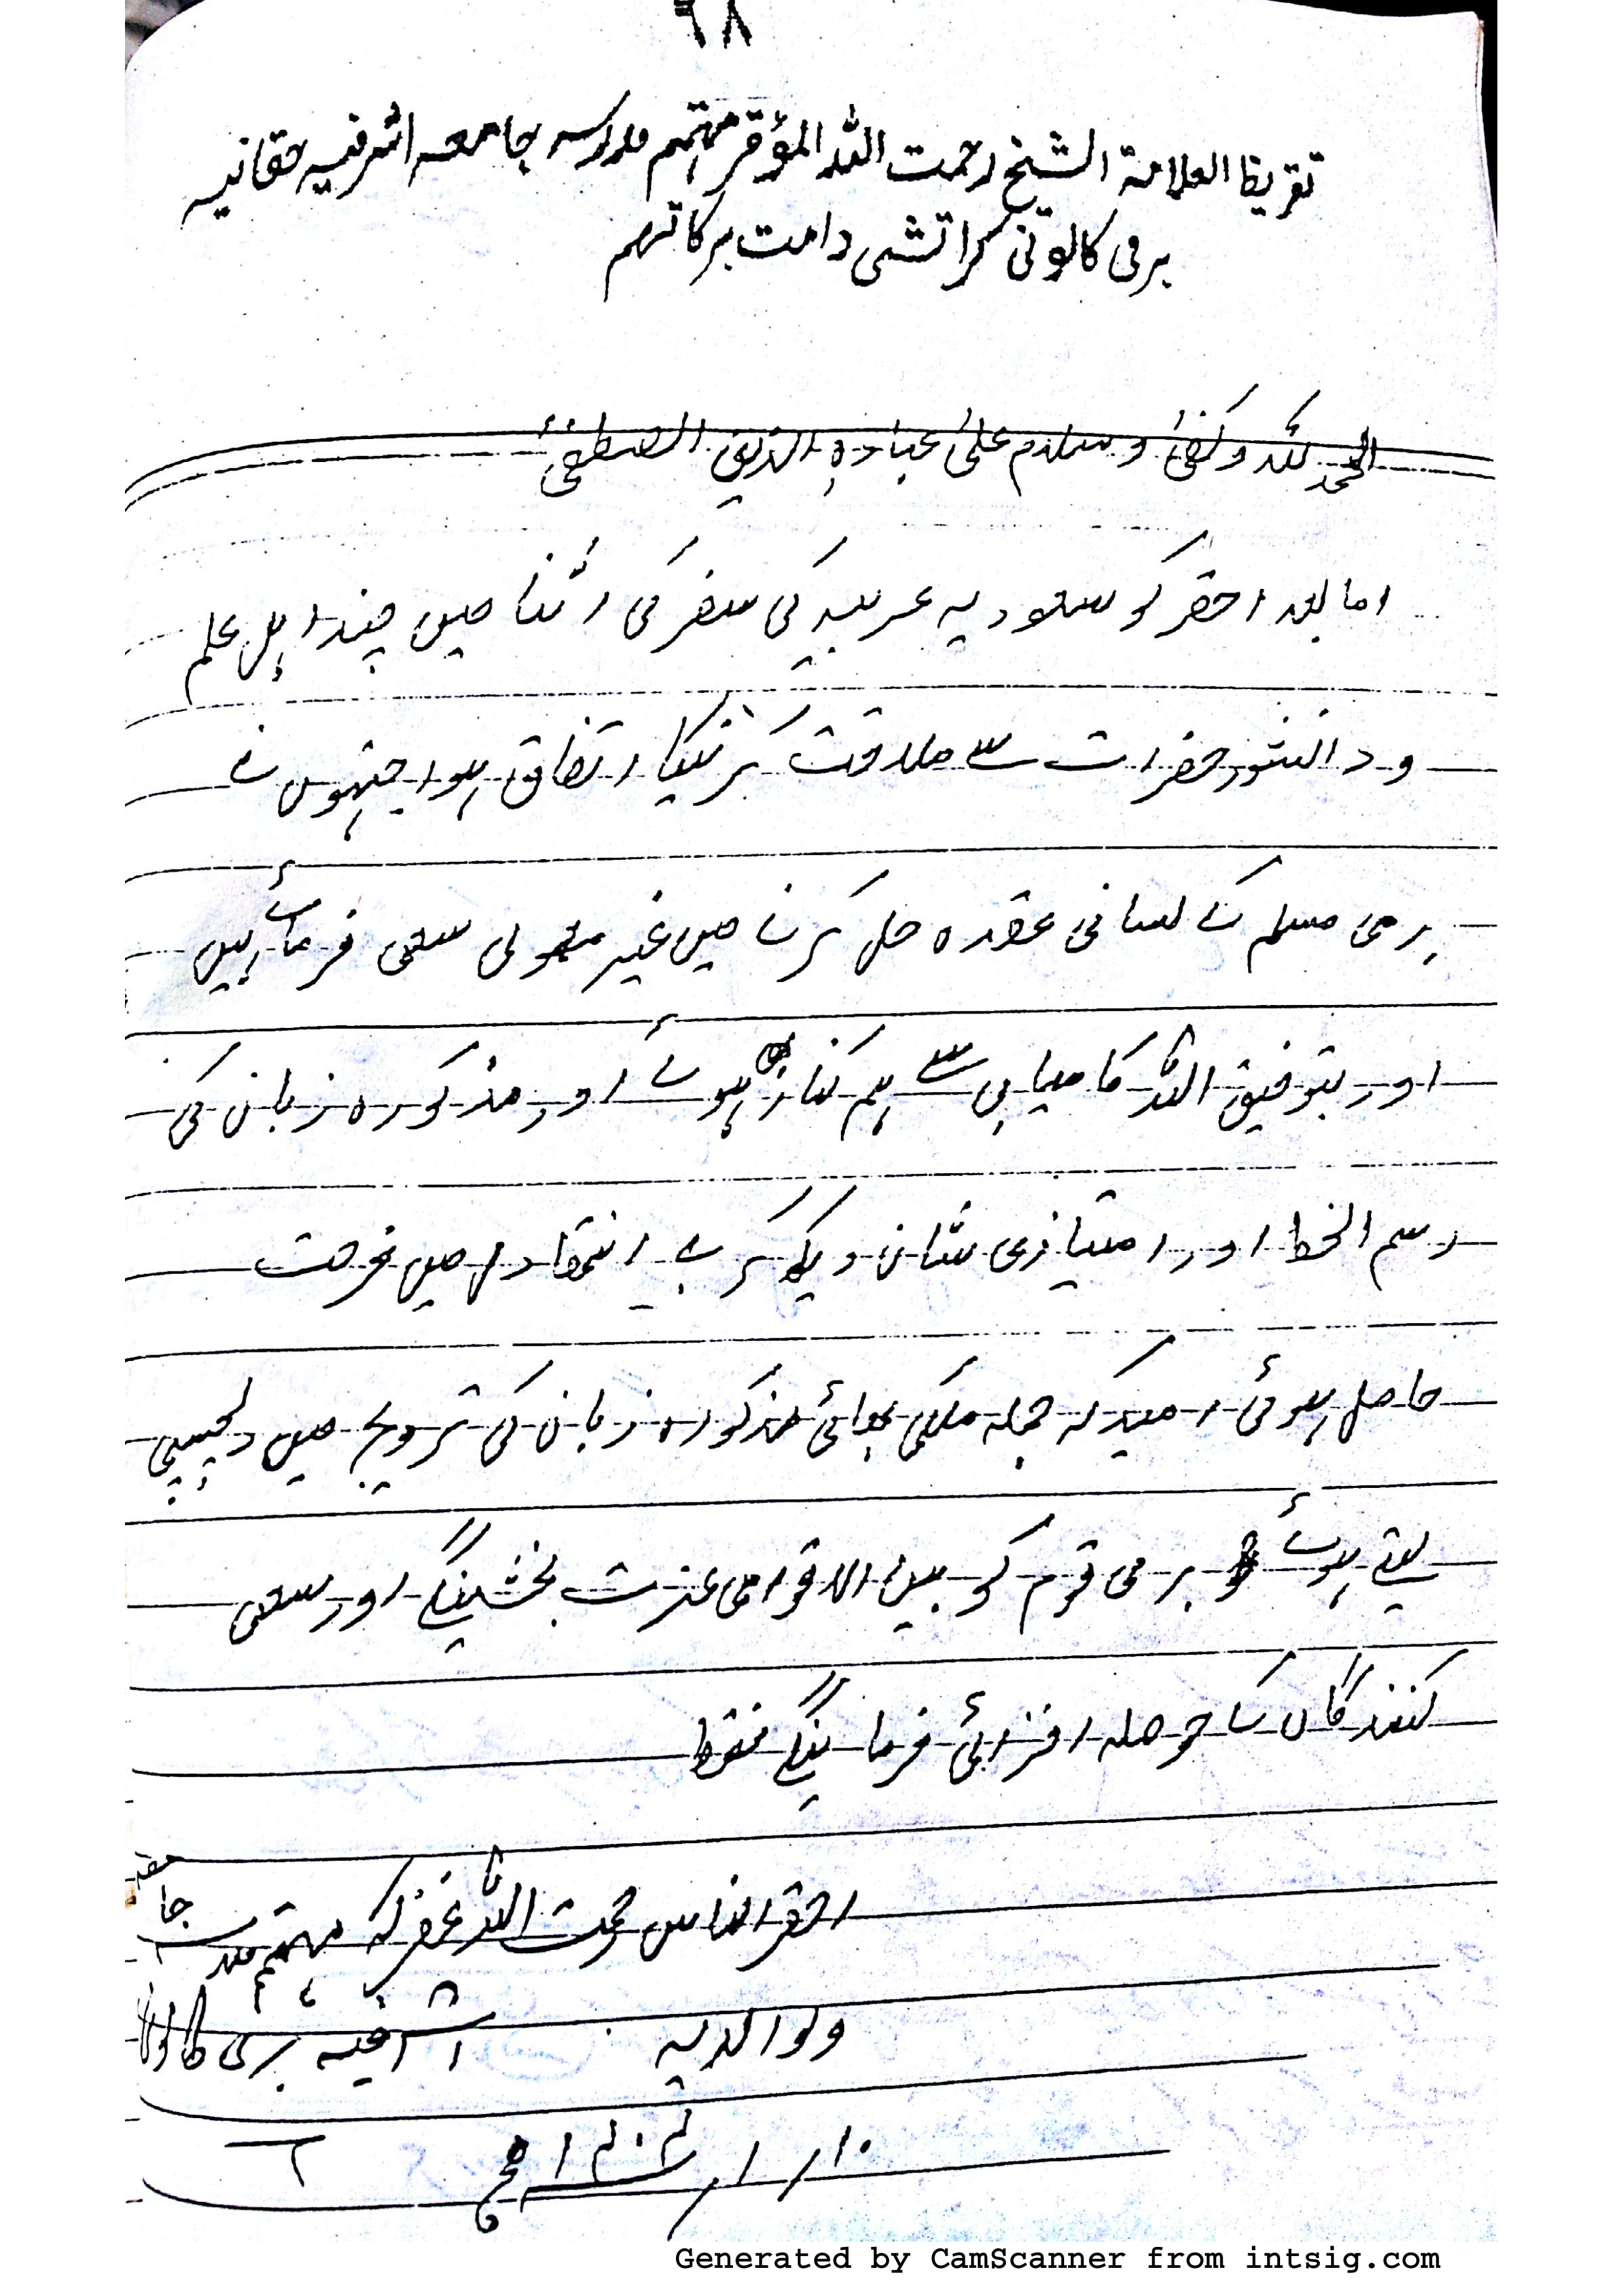 ٦٨
تقریظ العلامة الشیخ رحمت اللہ المؤقر مہتمم مدرسہ جامعہ اشرفیہ حقانیہ
برمی کالونی کراتشی دامت برکاتہم
الحمد للہ وکفیٰ وسلام علیٰ عبادہِ الذین اصطفیٰ
اما بعد احقر کو سعودیہ عربیہ کی سفر کی اثنا میں چند اہل علم
ودانشور حضرات سے ملاقت کرنیکا اتفاق ہوا جنہوں نے
برمی مسلم کے لسانی عقدہ حل کرنے میں غیر معمولی سعی فرمائے ہیں
اور بتوفیق اللہ کامیابی سے ہم کنار ہوئے اور مذکورہ زبان کی
رسم الخط اور امتیازی شان دیکھ کر بے انتہا دل میں فرحت
حاصل ہوئی امیدکہ جملہ ملکی بھائی مذکورہ زبان کی ترویج میں دلچسپی
لیتے ہوئے برمی قوم کو بین الاقوامی عزت بخشینگے اور سعی
کنندگان کے حوصلہ افزائی فرمائینگے فقط
احقر الناس رحمت اللہ غفرلہ مہتمم مدرسہ جامعہ
ولوالدیہ اشرفیہ برمی کالونی
Generated by CamScanner from intsig.com